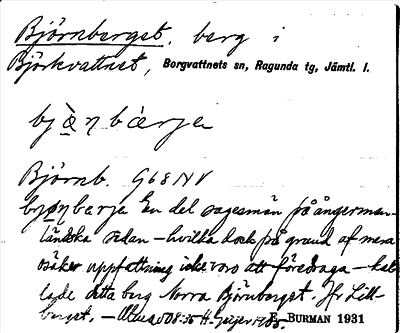 Björnberget, berg i
Björkvattnet, Borgvattnets sn, Ragunda tg, Jämtl. l.
bjὰ̠ŋbàrja
Björnb. G68NV
bjo̠ŋbarja En del sagesmän på ångerman-
ländska sidan – hvilka dock på grund af mera
osäker uppfattning icke voro att föredraga – kal-
lade detta berg Norra Björnberget. Jfr Lill-
berget. – H. Geijer 1908. E. BURMAN 1931